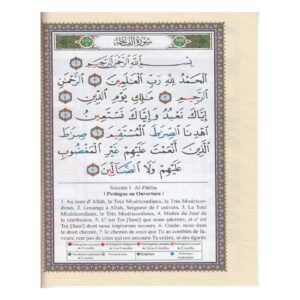 سورة الفاتحة
بِسْمِ اللَّهِ الرَّحْمَٰنِ الرَّحِيمِ ١
الْحَمْدُ لِلَّهِ رَبِّ الْعَالَمِينَ ٢ الرَّحْمَٰنِ
الرَّحِيمِ ٣ مَالِكِ يَوْمِ الدِّينِ ٤
إِيَّاكَ نَعْبُدُ وَإِيَّاكَ نَسْتَعِينُ ٥
اهْدِنَا الصِّرَاطَ الْمُسْتَقِيمَ ٦ صِرَاطَ
الَّذِينَ أَنْعَمْتَ عَلَيْهِمْ غَيْرِ الْمَغْضُوبِ
عَلَيْهِمْ وَلَا الضَّالِّينَ ٧
Sourate 1 Al-Fâtiha
( Prologue ou Ouverture )
1. Au nom d'Allah, le Tout Miséricordieux, le Très Miséricor-
dieux. 2. Louange à Allah, Seigneur de l'univers. 3. Le Tout
Miséricordieux, le Très Miséricordieux, 4. Maître du Jour de
la rétribution. 5. C'est Toi [Seul] que nous adorons, et c'est
Toi [Seul] dont nous implorons secours. 6. Guide- nous dans
le droit chemin, 7. le chemin de ceux que Tu as comblés de fa-
veurs, non pas de ceux qui ont encouru Ta colère, ni des égarés.